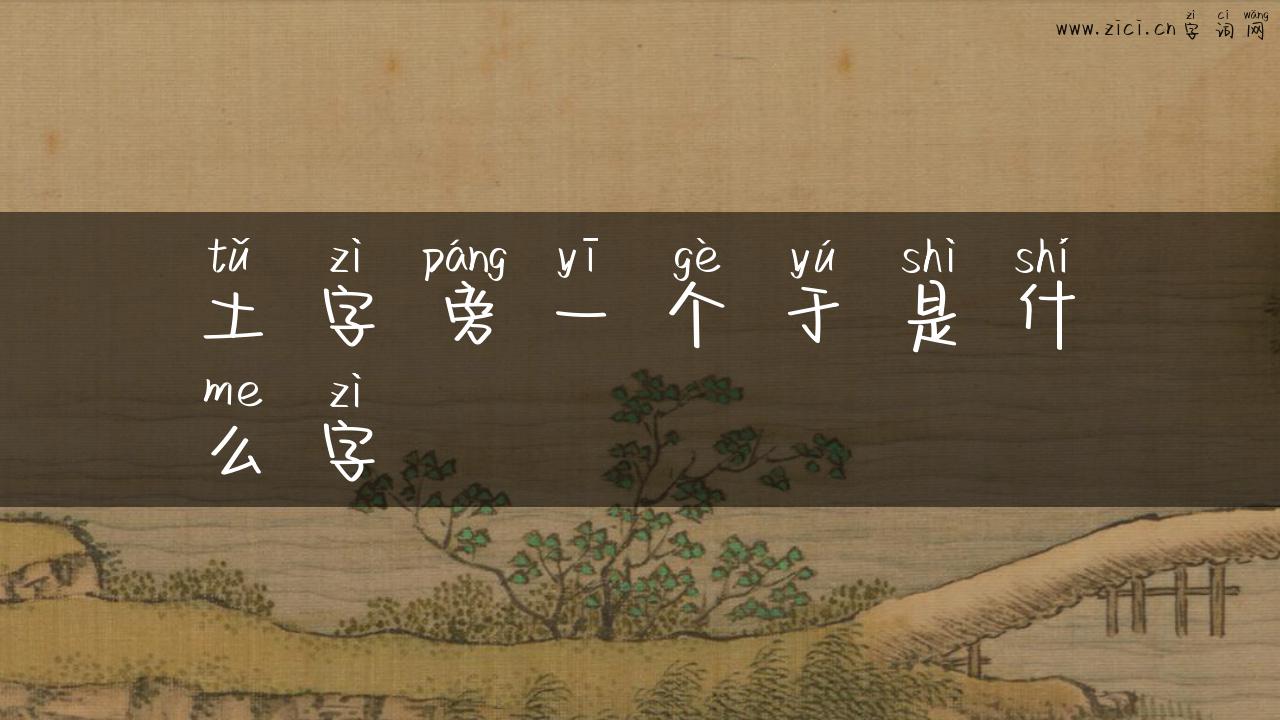 zì cí wǎng
www.zici.cn 字 词 网
tǔ zì páng yī gè yú shì shí
土 字 旁 一 个 于 是 什
me zì
么 字